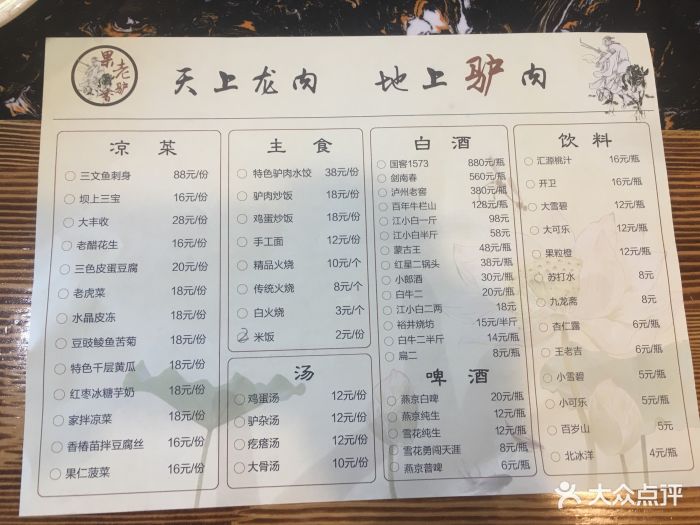 天上龙肉 地上驴肉
凉菜
三文鱼刺身 88元/份
坝上三宝 16元/份
大丰收 28元/份
老醋花生 16元/份
三色皮蛋豆腐 20元/份
老虎菜 18元/份
水晶皮冻 18元/份
豆豉鲮鱼苦菊 18元/份
特色千层黄瓜 18元/份
红枣冰糖芋奶 18元/份
家拌凉菜 18元/份
香椿苗拌豆腐丝 16元/份
果仁菠菜 16元/份
主食
特色驴肉水饺 38元/份
驴肉炒饭 18元/份
鸡蛋炒饭 18元/份
手工面 12元/份
精品火烧 10元/个
传统火烧 8元/个
白火烧 3元/个
2 米饭 2元/份
汤
鸡蛋汤 12元/份
驴杂汤 12元/份
疙瘩汤 12元/份
大骨汤 10元/份
白酒
国窖1573 880元/瓶
剑南春 560元/瓶
泸州老窖 380元/瓶
百年牛栏山 128元/瓶
江小白一斤 98元
江小白半斤 58元
蒙古王 48元/瓶
红星二锅头 38元/瓶
小郎酒 30元/瓶
白牛二 20元/瓶
江小白二两 18元
裕井烧坊 15元/半斤
白牛二半斤 14元/瓶
扁二 8元/瓶
啤酒
燕京白啤 20元/瓶
燕京纯生 12元/瓶
雪花纯生 12元/瓶
雪花勇闯天涯 8元/瓶
燕京普啤 6元/瓶
饮料
汇源桃汁 16元/瓶
开卫 16元/瓶
大雪碧 12元/瓶
大可乐 12元/瓶
果粒橙 12元/瓶
苏打水 8元
九龙斋 8元
杏仁露 6元/瓶
王老吉 6元/瓶
小雪碧 5元/瓶
小可乐 5元/瓶
百岁山 5元
北冰洋 4元/瓶
大众点评